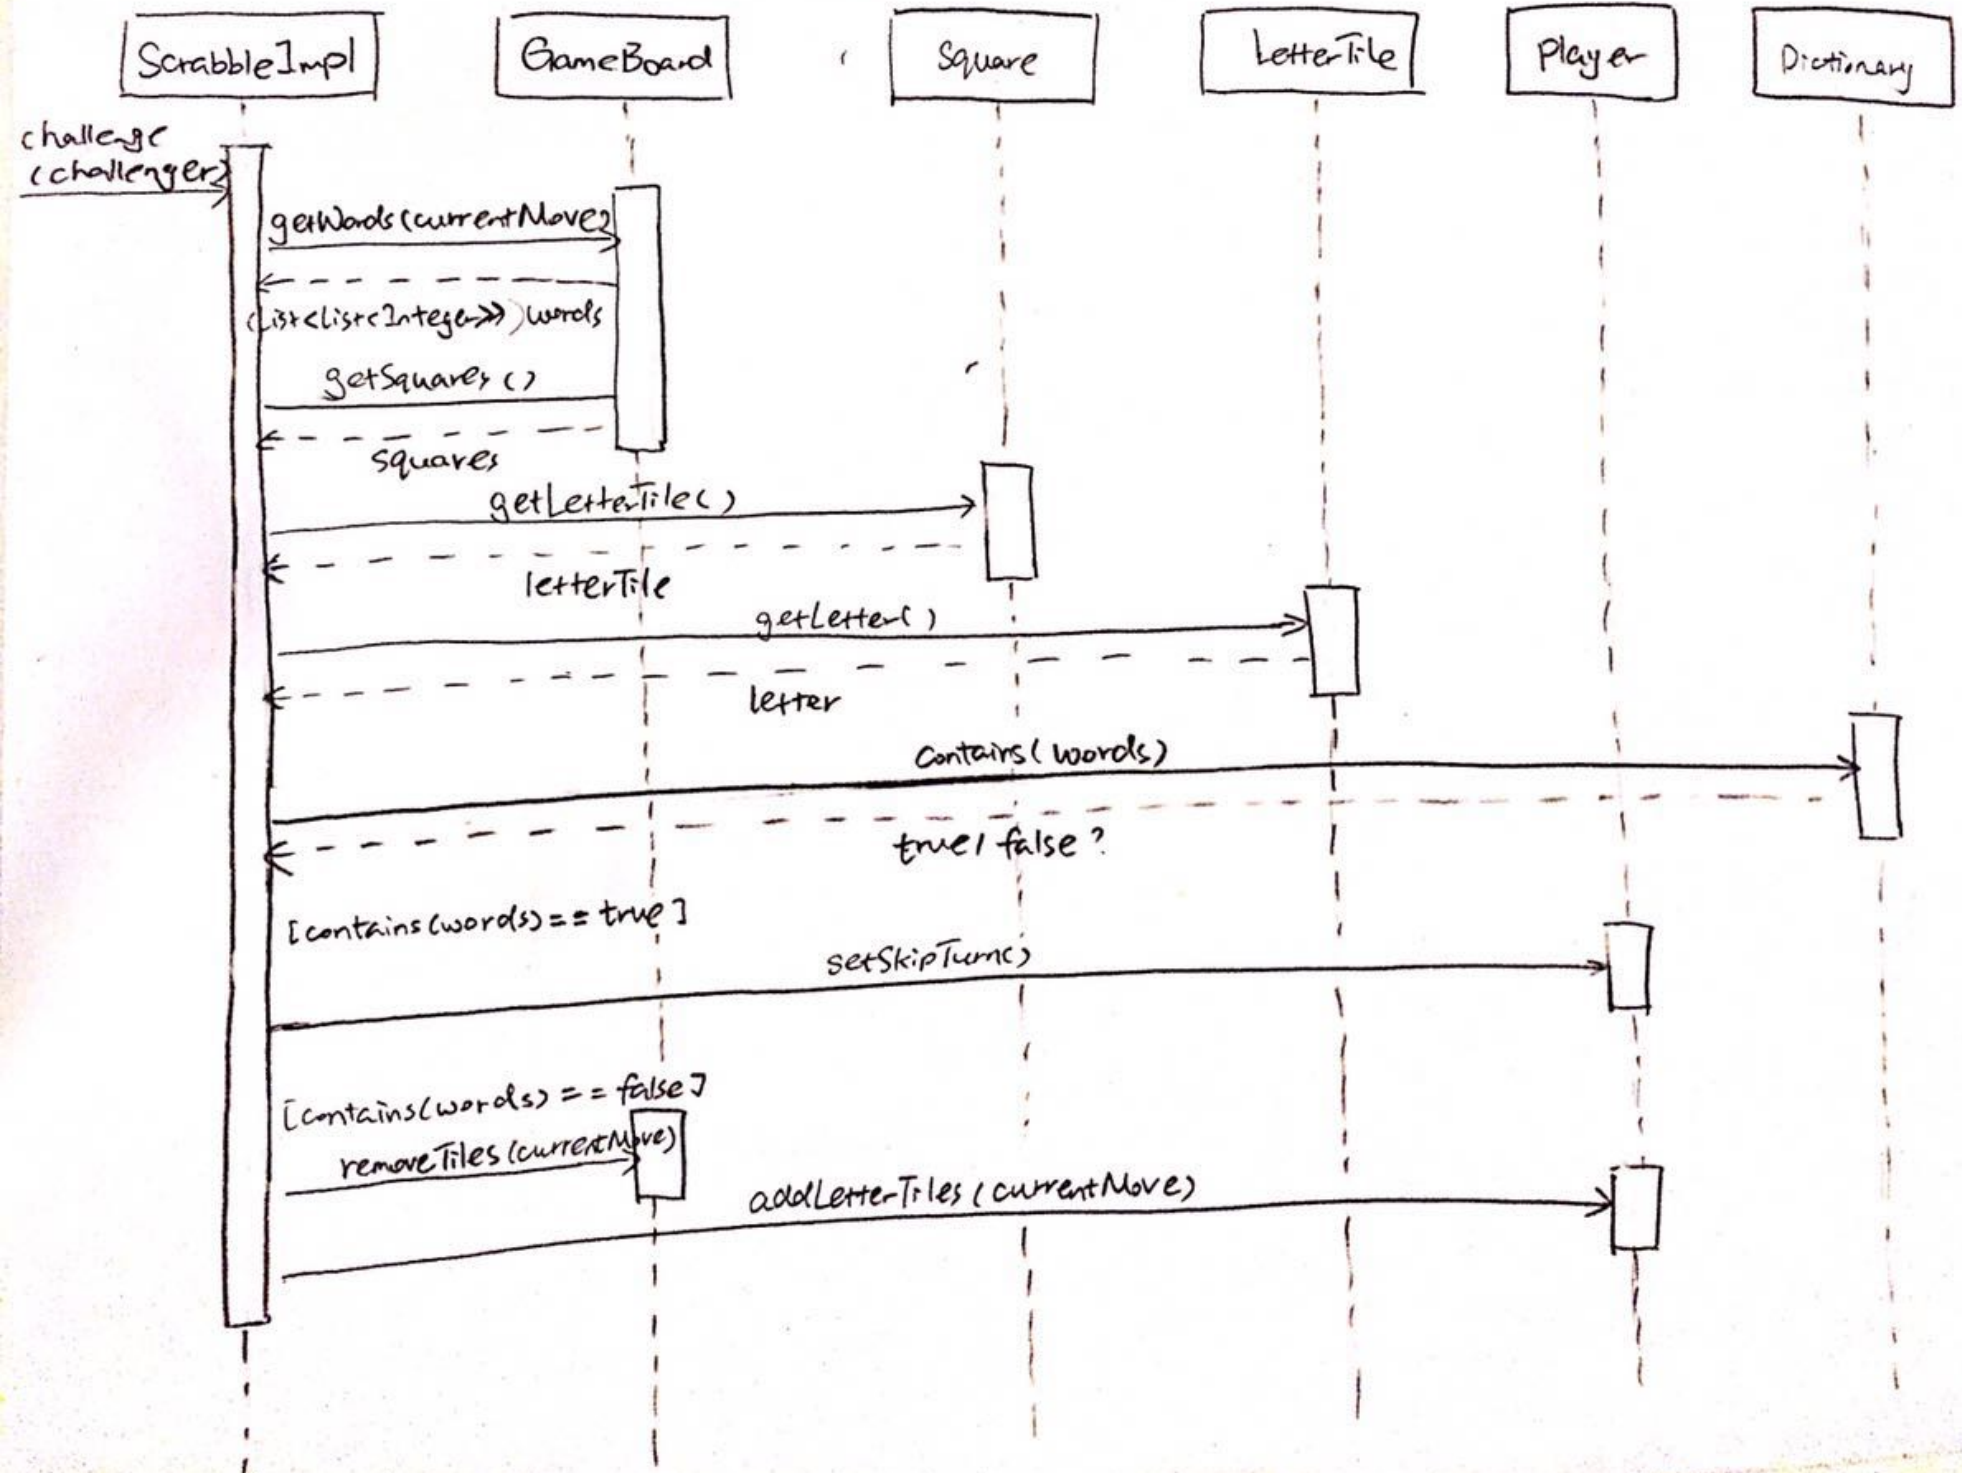 ScrabbleImpl
GameBoard
Square
LetterTile
Player
Dictionary
challenge
(challenger)
getWords(currentMove)
(List<List<Integer>>)words
getSquares()
squares
getLetterTile()
letterTile
getLetter()
letter
contains(words)
true/false?
[contains(words)==true]
setSkipTurn()
[contains(words)==false]
removeTiles(currentMove)
addLetterTiles(currentMove)